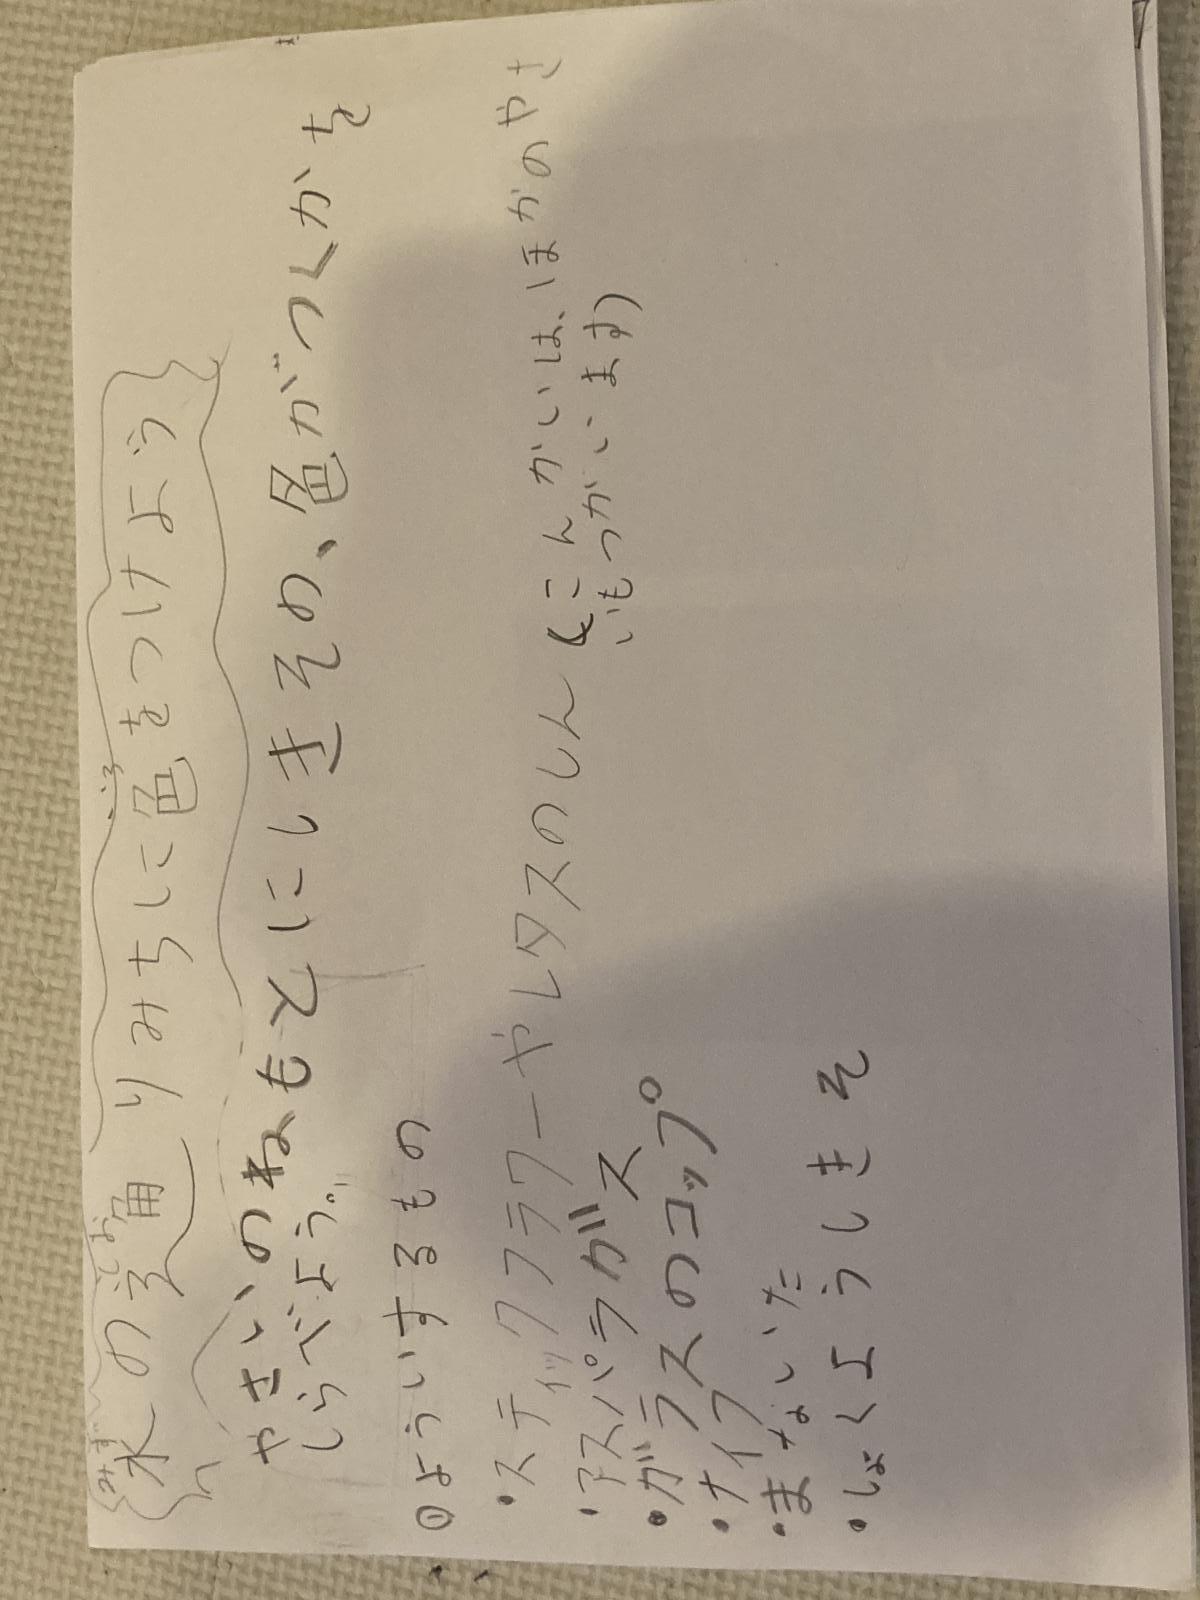 水の通りみちに色をつけよう
やさいのねもとにしきその、色がつくかを
しらべよう。
①よういするもの
・スティックフラワーやレタスのしん(こんかいは、ほかのやさ
いもつかいます)
・アスパラガス
・ガラスのコップ
・ナイフ
・まないた
・しょくようしきそ